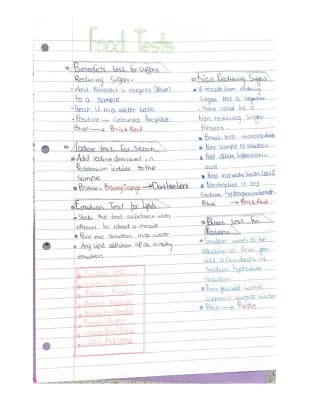 Food Tests
• Benedicts test for sugars
Reducing Sugar-
- Add Benedict's reagent (blue)
to a sample
- Heat it in a water bath
- Positive - Coloured Precipitate
Blue → Brick Red
• Iodine test for Starch
• Add iodine dissolved in
Potassium iodide to the
Sample
• Positive - Browny Orange → Dark blue black
• Emulsion Test for Lipids
• Shake the test substance with
ethanol for about a minute
• Pour the solution into water
• Any lipid will show up as a milky
emulsion
• Non Reducing Sugars
• If results from reducing
Sugar test is negative
there could be a
Non reducing Sugar
Present.
• Break into monosaccharides
• New sample to solution
• Add dilute hydrochloric
acid
• Heat in a water bath
• Neutralise it by
Sodium hydrogencarbonate
Blue → Brick Red
• Biuret test for
Proteins
• Solution needs to be
alkaline so first you
add a few drops of
Sodium hydroxide
Solution
• Then you add some
copper(II) sulfate solution
• Blue → Purple